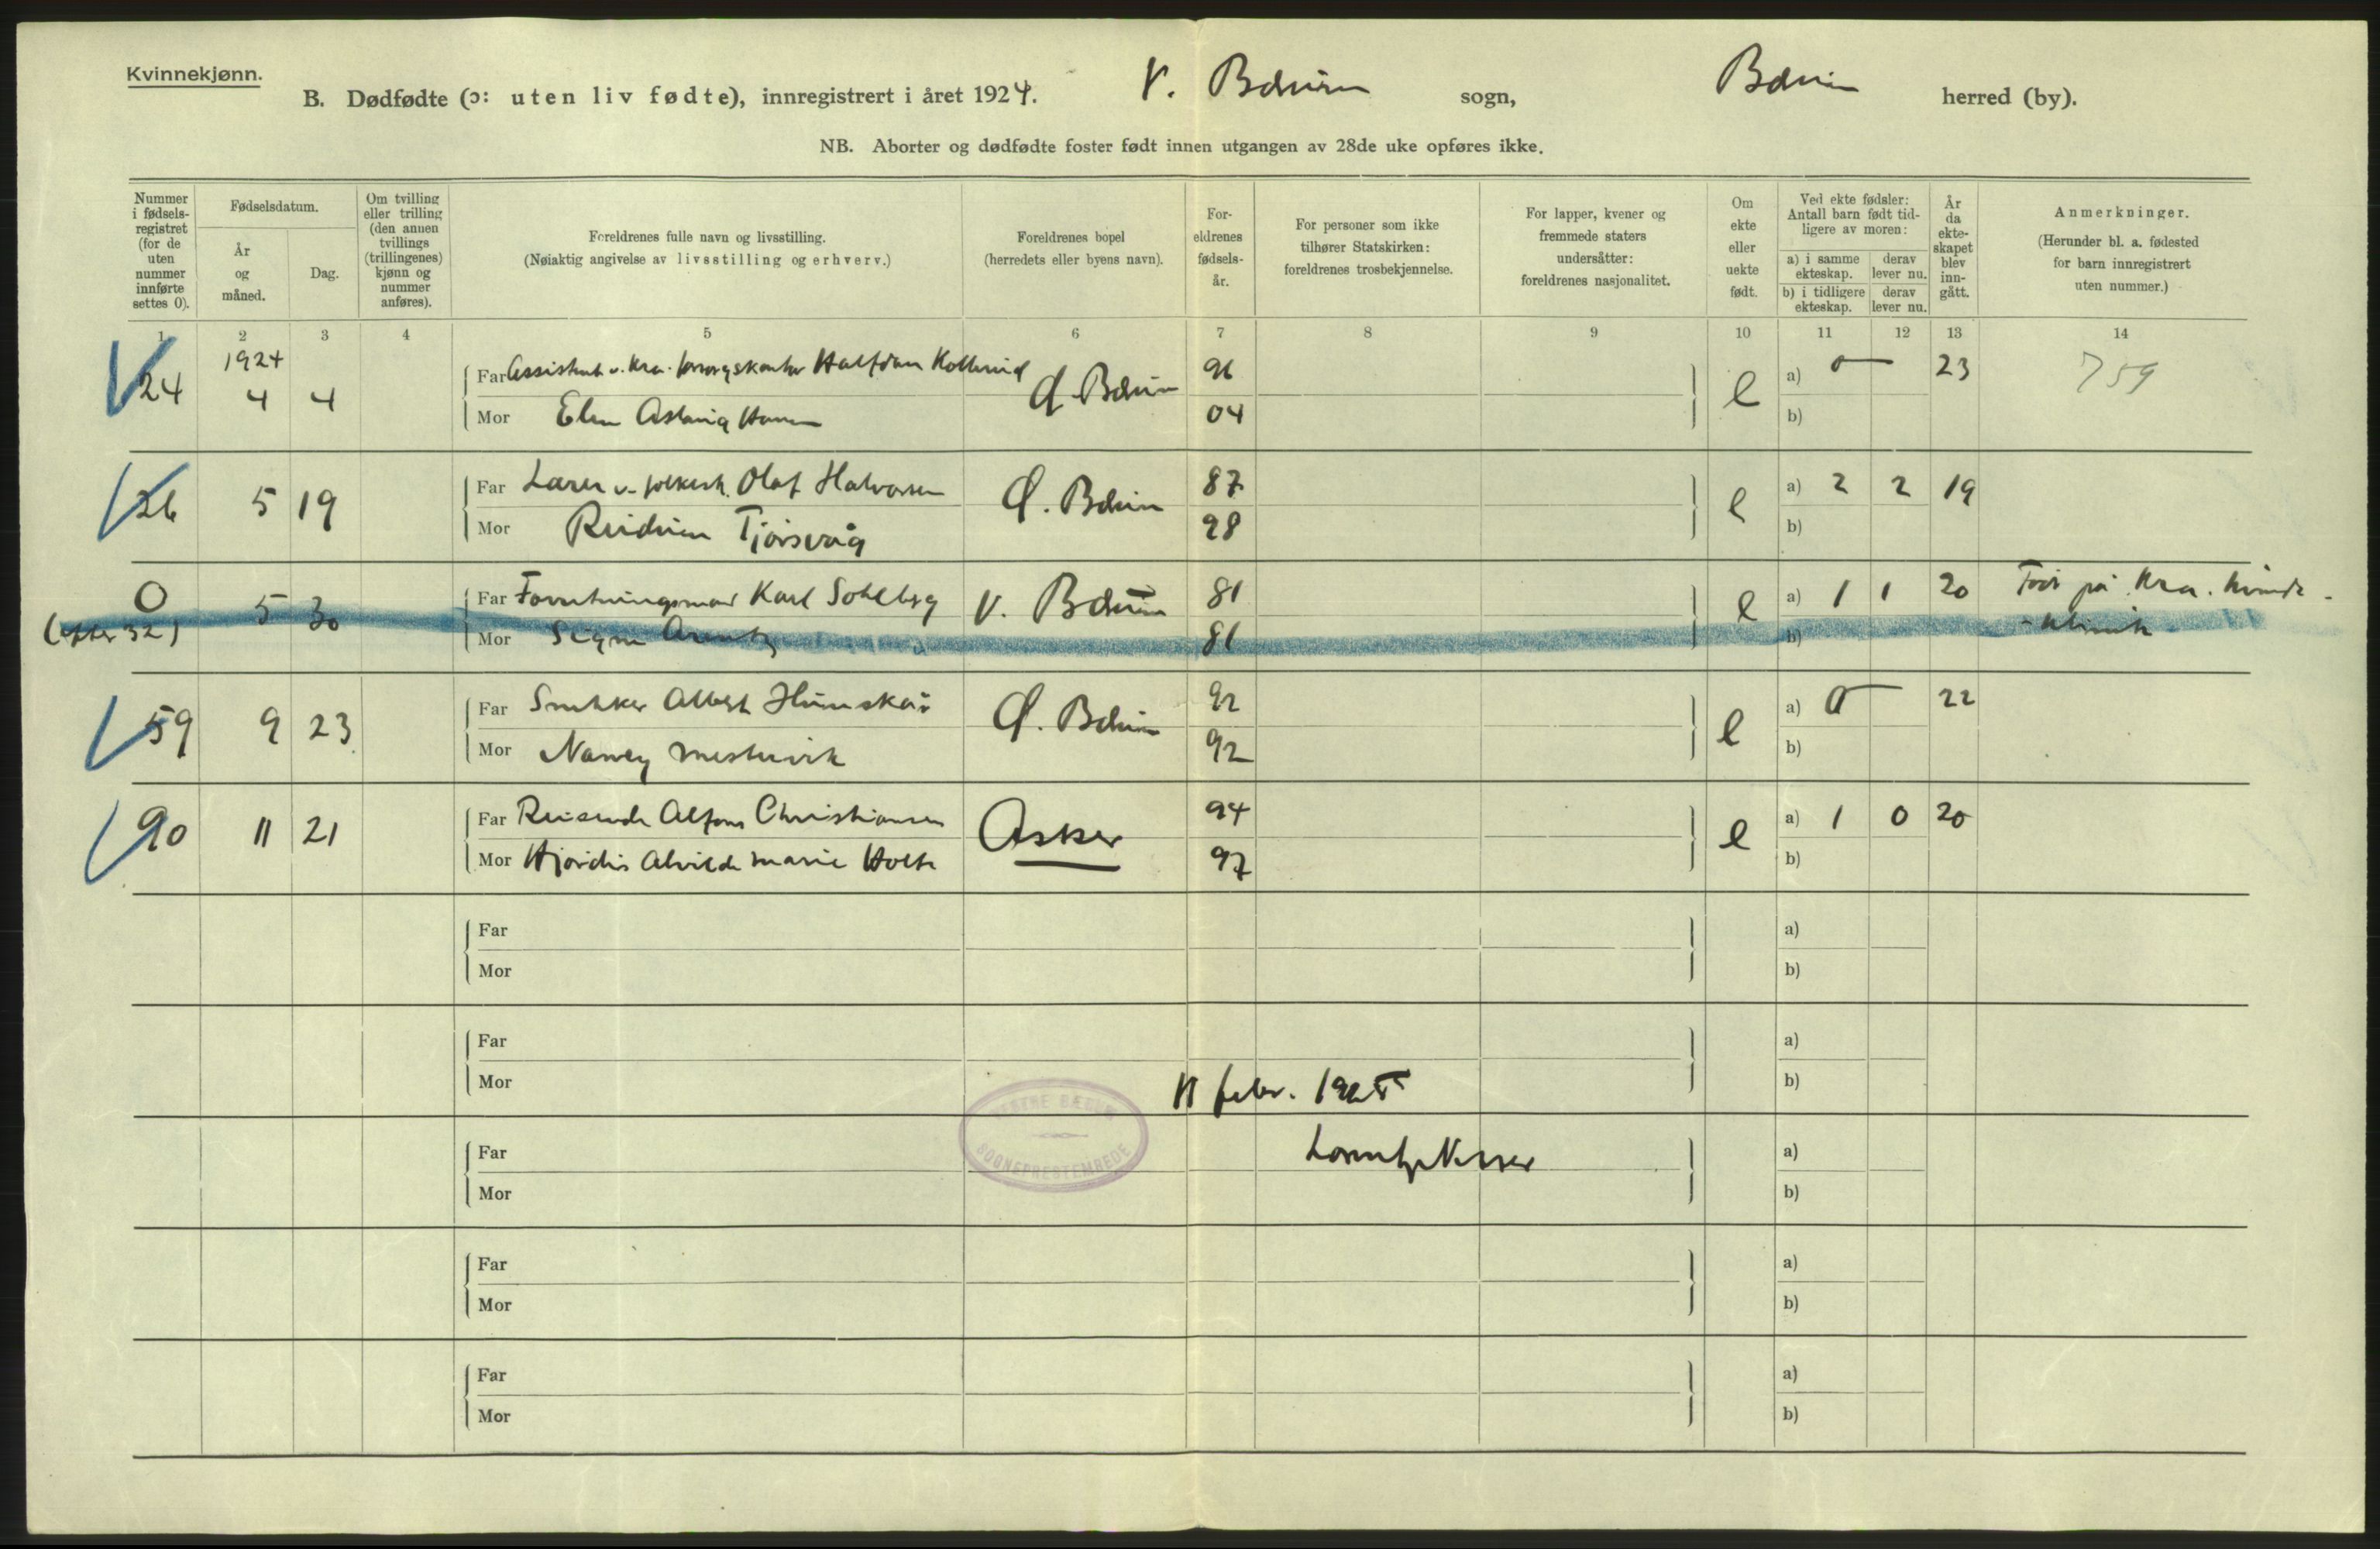 Kvinnekjønn.
B. Dødfødte (ɔ: uten liv fødte), innregistrert i året 1924. V. Bærum sogn, Bærum herred (by).
NB. Aborter og dødfødte foster født innen utgangen av 28de uke opføres ikke.
Nummer i fødsels-registret (for de uten nummer innførte settes 0).
Fødselsdatum.
År og måned.
Dag.
Om tvilling eller trilling (den annen tvillings (trillingenes) kjønn og nummer anføres).
Foreldrenes fulle navn og livsstilling.
(Nøiaktig angivelse av livsstilling og erhverv.)
Foreldrenes bopel
(herredets eller byens navn).
For-eldrenes fødsels-år.
For personer som ikke tilhører Statskirken: foreldrenes trosbekjennelse.
For lapper, kvener og fremmede staters undersåtter: foreldrenes nasjonalitet.
Om ekte eller uekte født.
Ved ekte fødsler: Antall barn født tid-ligere av moren:
a) i samme ekteskap.
derav lever nu.
b) i tidligere ekteskap.
derav lever nu.
År da ekte-skapet blev inn-gått.
Anmerkninger.
(Herunder bl. a. fødested for barn innregistrert uten nummer.)
1 2 3 4 5 6 7 8 9 10 11 12 13 14
1924
24 4 4 Far Assistent v. Kra. Halfdan Ø. Bærum 96 e a) 0 23 759
Mor Aslaug 04 b)
26 5 19 Far Lærer v. folkesk. Olaf Halvorsen Ø. Bærum 87 e a) 2 2 19
Mor Reidun Tjørsvåg 98 b)
0 5 30 Far Forretningsmand Karl Sohlberg V. Bærum 81 e a) 1 1 20 Født på Kra. kvinde-
(efter 32) Mor Signe Arentz 81 b) -klinik
59 9 23 Far Snekker Albert Ø. Bærum 92 e a) 0 22
Mor Nancy 92 b)
90 11 21 Far Reisende Alfons Christiansen Asker 94 e a) 1 0 20
Mor Hjørdis Alvilde Marie Holte 97 b)
Far a)
Mor b)
Far a)
Mor b)
11 febr. 1925
VESTRE BÆRUM
SOGNEPRESTEMBEDE
Far a)
Mor b)
Far a)
Mor b)
Far a)
Mor b)